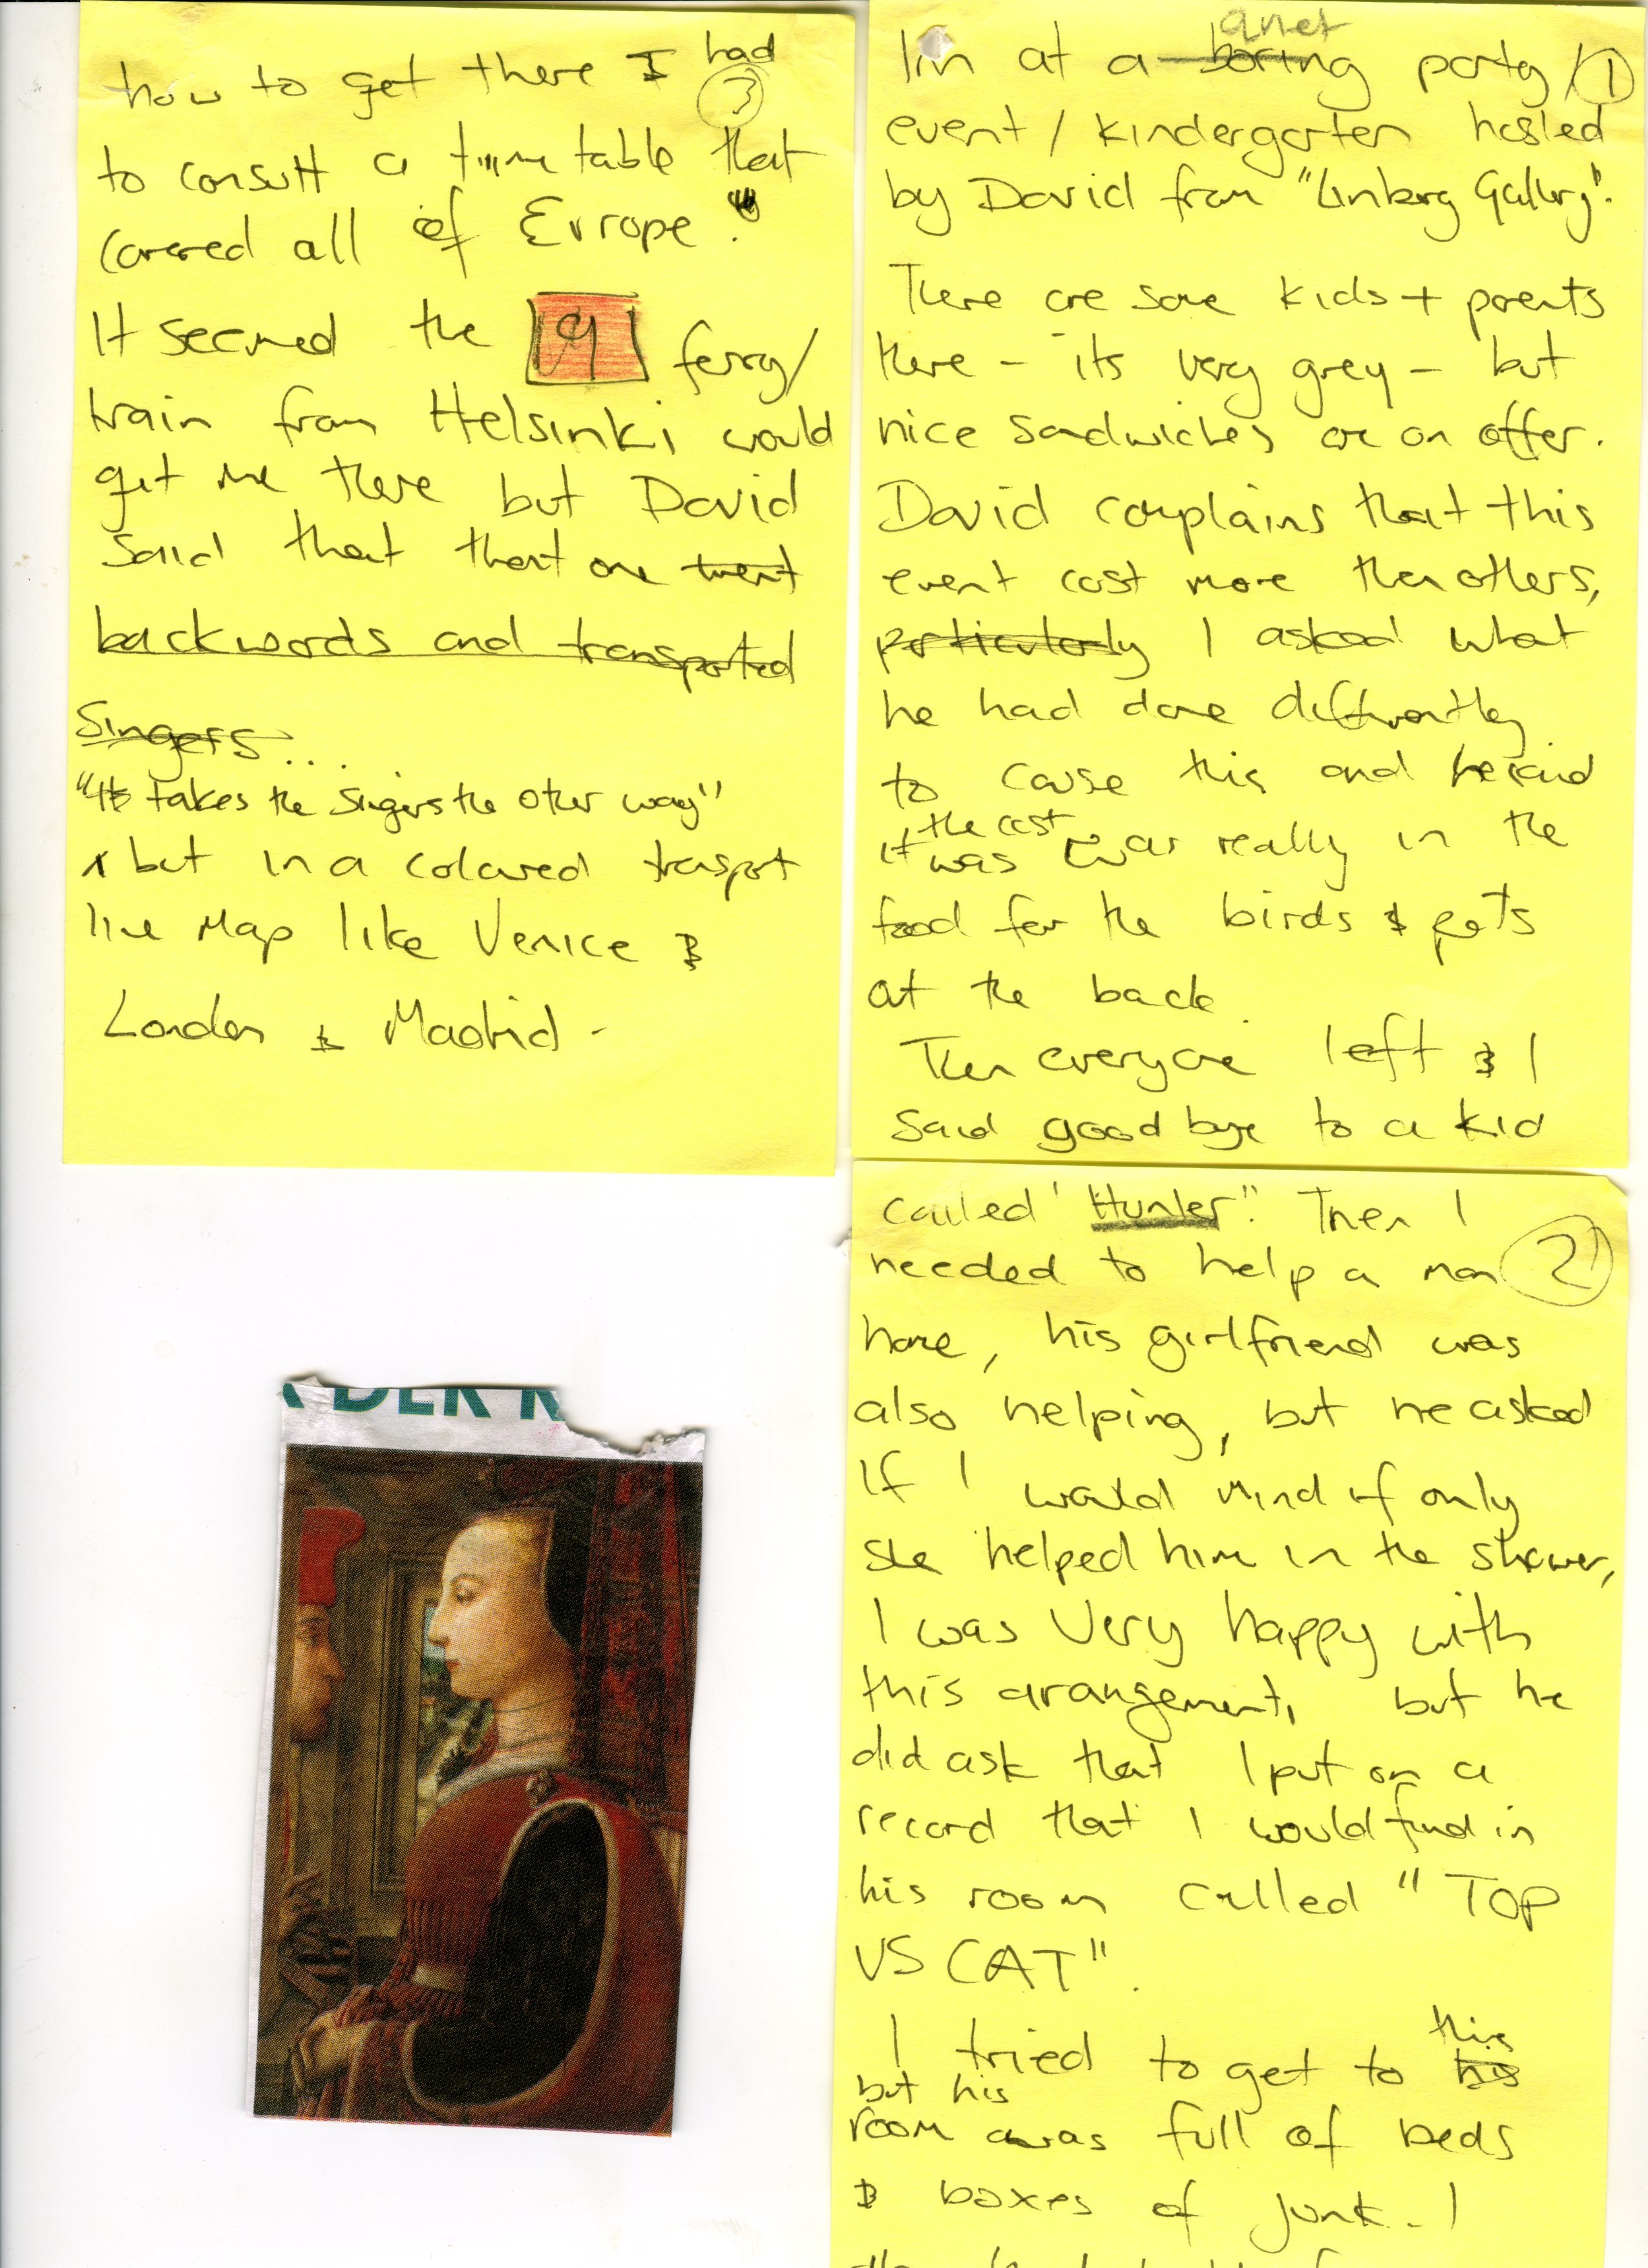 I'm at a boring quiet party / 1
event / kindergarten hosled
by David from "Linberg Gallery".
There are some kids + parents
there - its very grey - but
nice sandwiches are on offer.
David complains that this
event cost more then others,
particularly I asked what
he had done differently
to cause this and he said
it the cost was was really in the
food for the birds & pets
at the back.
Then everyone left & I
said good bye to a kid
called 'Hunler". Then I
needed to help a man 2
home, his girlfriend was
also helping, but he asked
if I would mind if only
she helped him in the shower,
I was very happy with
this arangement, but he
did ask that I put on a
record that I would find in
his room called "TOP
VS CAT".
I tried to get to his this
but his
room was full of beds
& boxes of junk. I
how to get there I had
3
to consult a time table that
covered all of Europe."
It seemed the 91 ferry/
train from Helsinki would
get me there but David
said that that one went
backwords and transported
Singers...
"It takes the singers the other way"
but in a coloured transport
line map like Venice &
London & Madrid -
DER